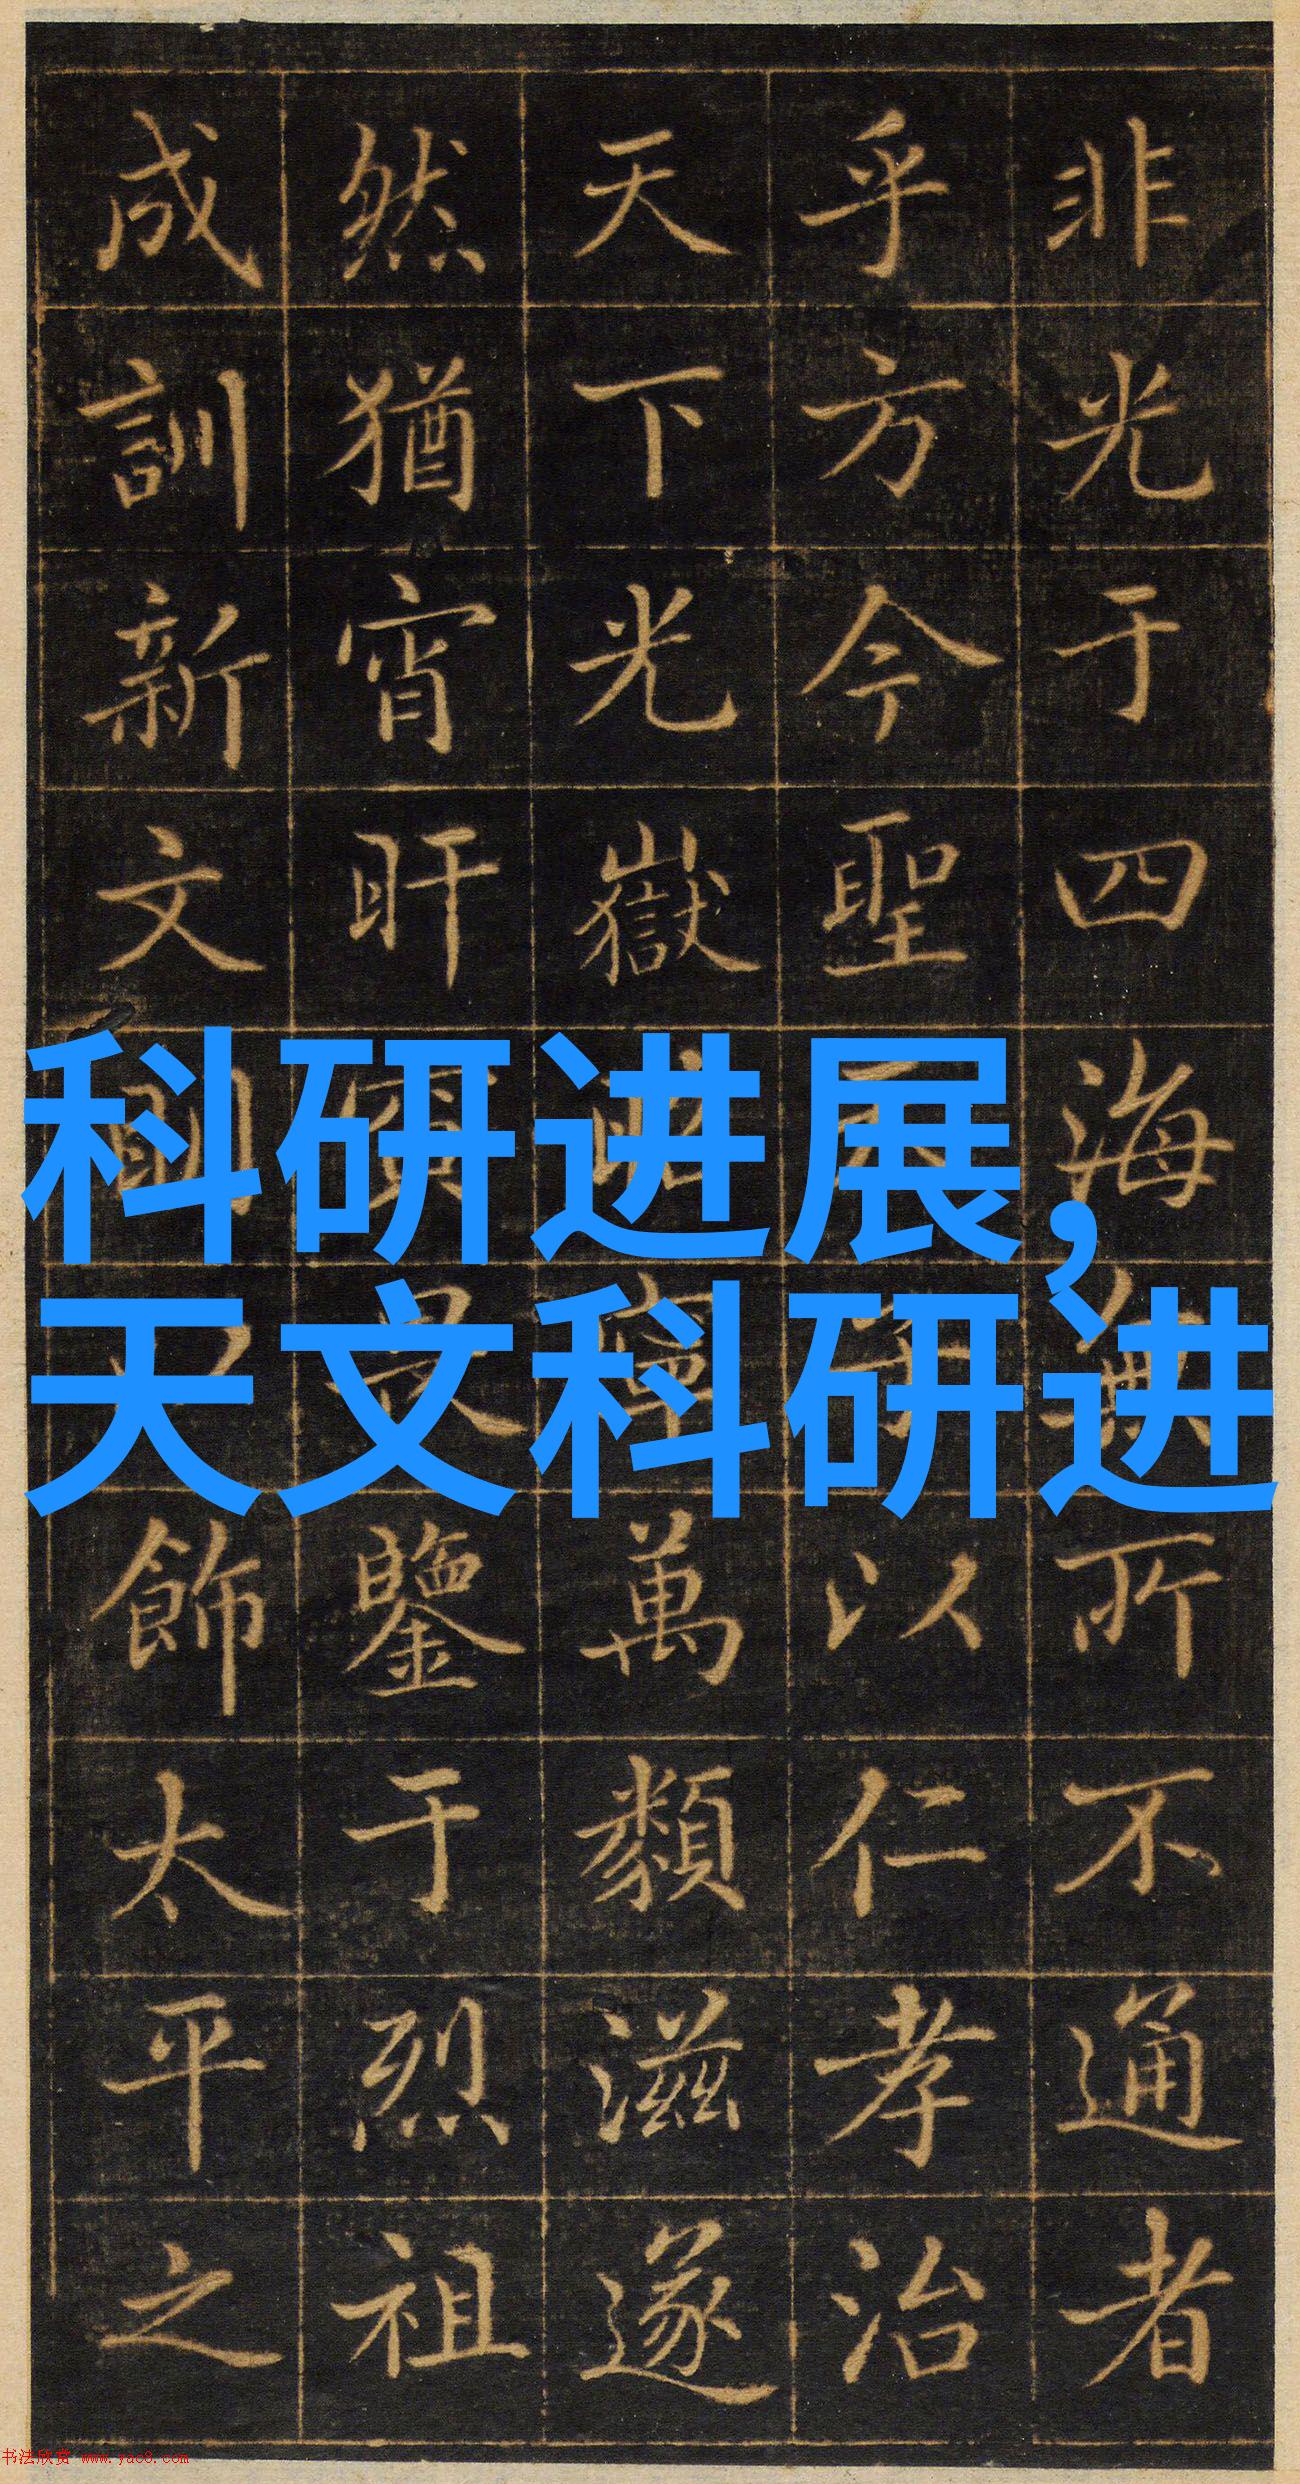 非光于四海無所不通者
乎方今聖以仁孝治
天下光嶽萬類滋遂
然猶宵旰鑒于烈祖
成訓新文飾太平之
科研进展,
天文科研进
书法欣赏 www.yac8.com